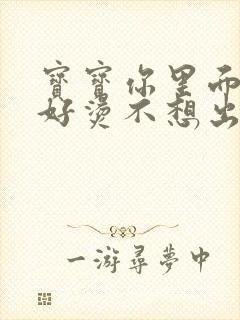 寶寶你里面
好燙不想出
一游尋夢中